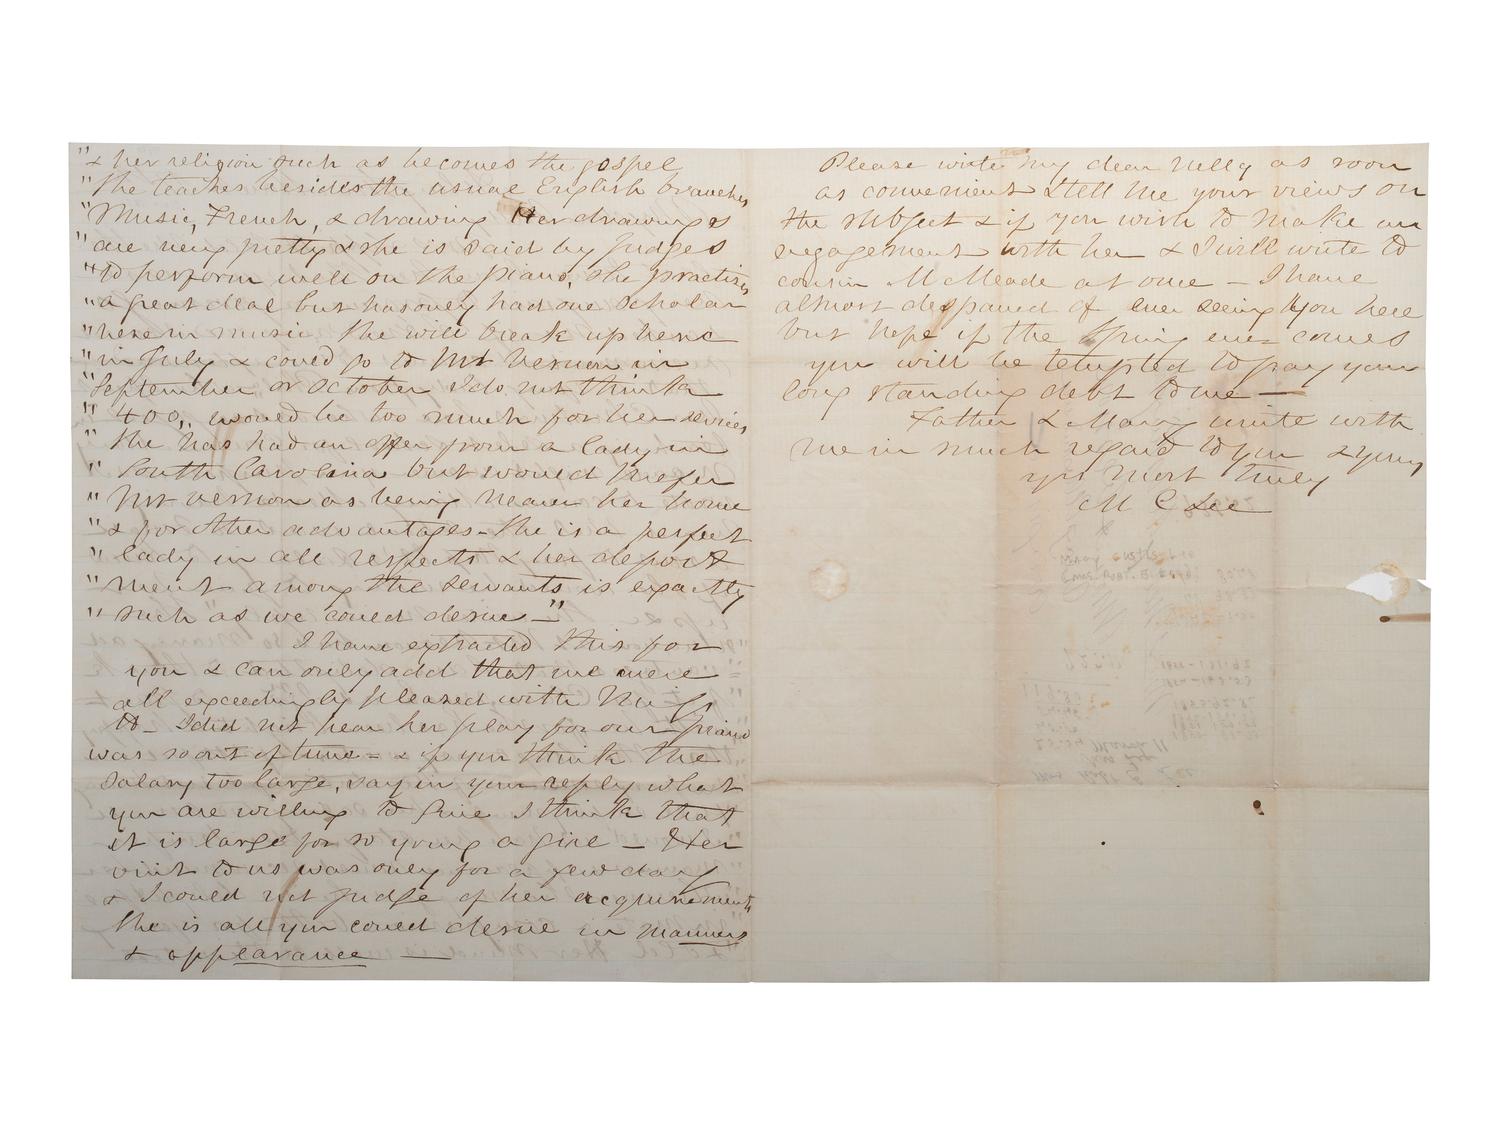 " & her religion such as becomes the gospel
" She teaches besides the usual English branches
" Music, French, & drawing Her drawings
" are very pretty & she is said by judges
" to perform well on the piano, she practises
" a great deal but has only had one Scholar
" here in music She will break up here
" in July & could go to Mt Vernon in
" September or October I do not think
" 400,, would be too much for her services
" She has had an offer from a lady in
" South Carolina but would prefer
" Mt Vernon as being nearer her home
" & for other advantages - She is a perfect
" lady in all respects & her deport
" ment among the servants is exactly
" such as we could desire - "
I have extracted this for
you & can only add that we were
all exceedingly pleased with Miss
H - I did not hear her play for our piano
was so out of tune - & if you think the
Salary too large, say in your reply what
you are willing to give I think that
it is large for so young a girl - Her
visit to us was only for a few days
& I could not judge of her acquirements
She is all you could desire in manners
& appearance —
Please write my dear Nelly as soon
as convenient & tell me your views on
the subject & if you wish to make an
engagement with her & I will write to
cousin M Meade at once - I have
almost despaired of ever seeing you here
but hope if the Spring ever comes
you will be tempted to pay your
long standing debt to me —
Father & Mary unite with
me in much regard to you & yours
yrs most truly
M C Lee